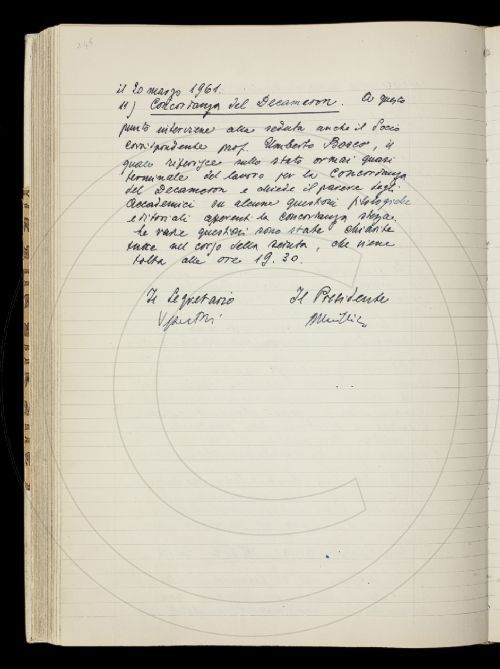 246
il 20 marzo 1961.
11) Concordanza del Decameron. A questo
punto interviene alla seduta anche il Socio
corrispondente prof. Umberto Bosco, il
quale riferisce sullo stato ormai quasi
terminale del lavoro per la Concordanza
del Decameron e chiede il parere degli
Accademici su alcune questioni filologiche
e editoriali aperenti la concordanza stessa.
Le varie questioni sono state chiarite
tutte nel corso della seduta, che viene
tolta alle ore 19.30.
Il Segretario Il Presidente